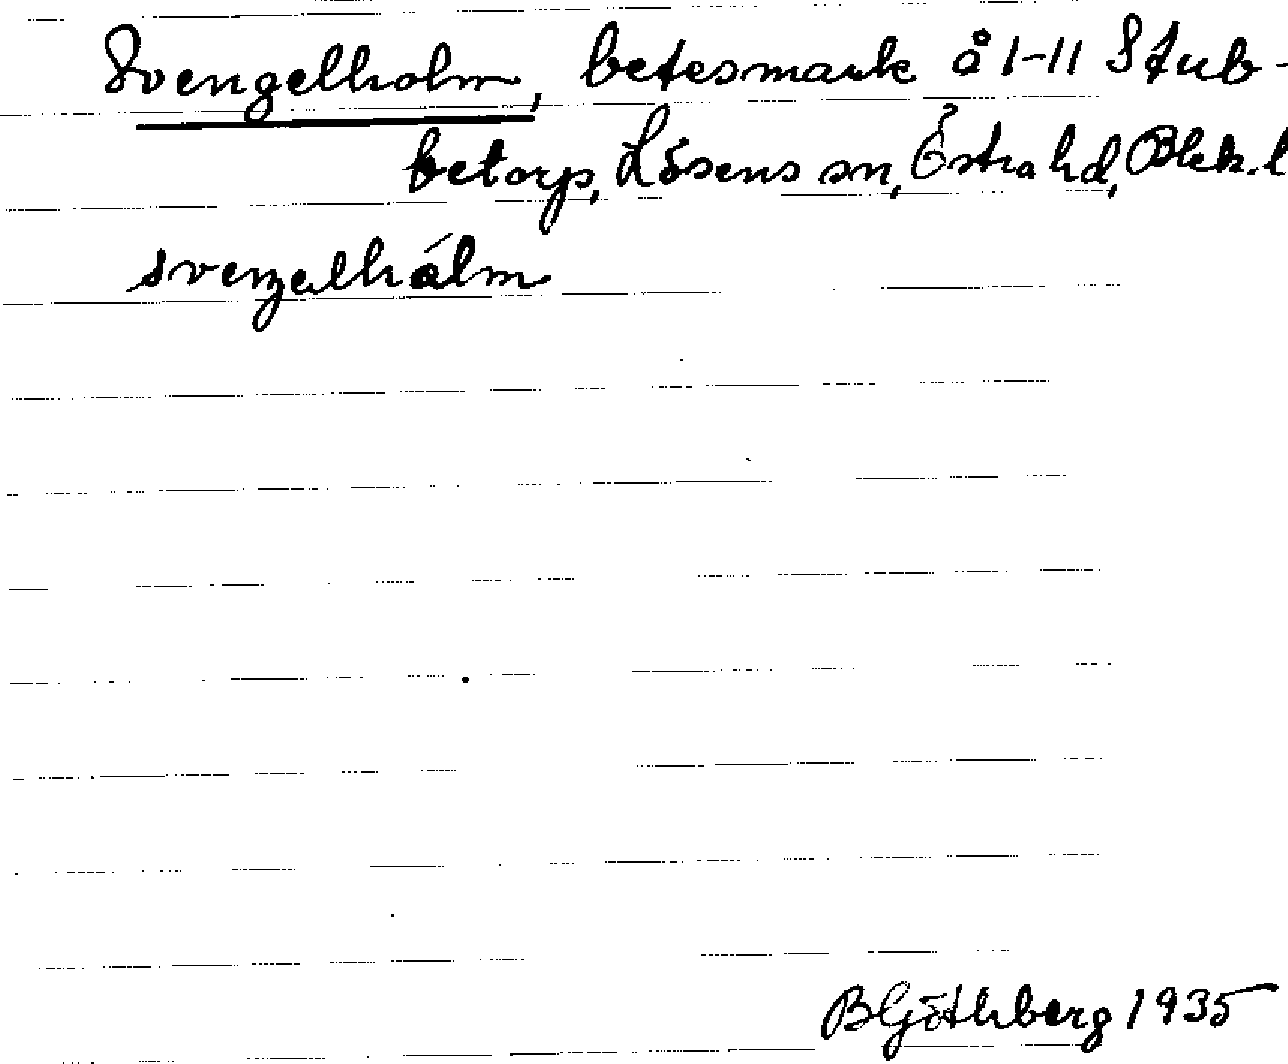 Svengelholm, betesmark å 1-11 Stub-
betorp, Lösens sn, Östra hd, Blek. l
svengelhålm
B Göthberg 1935